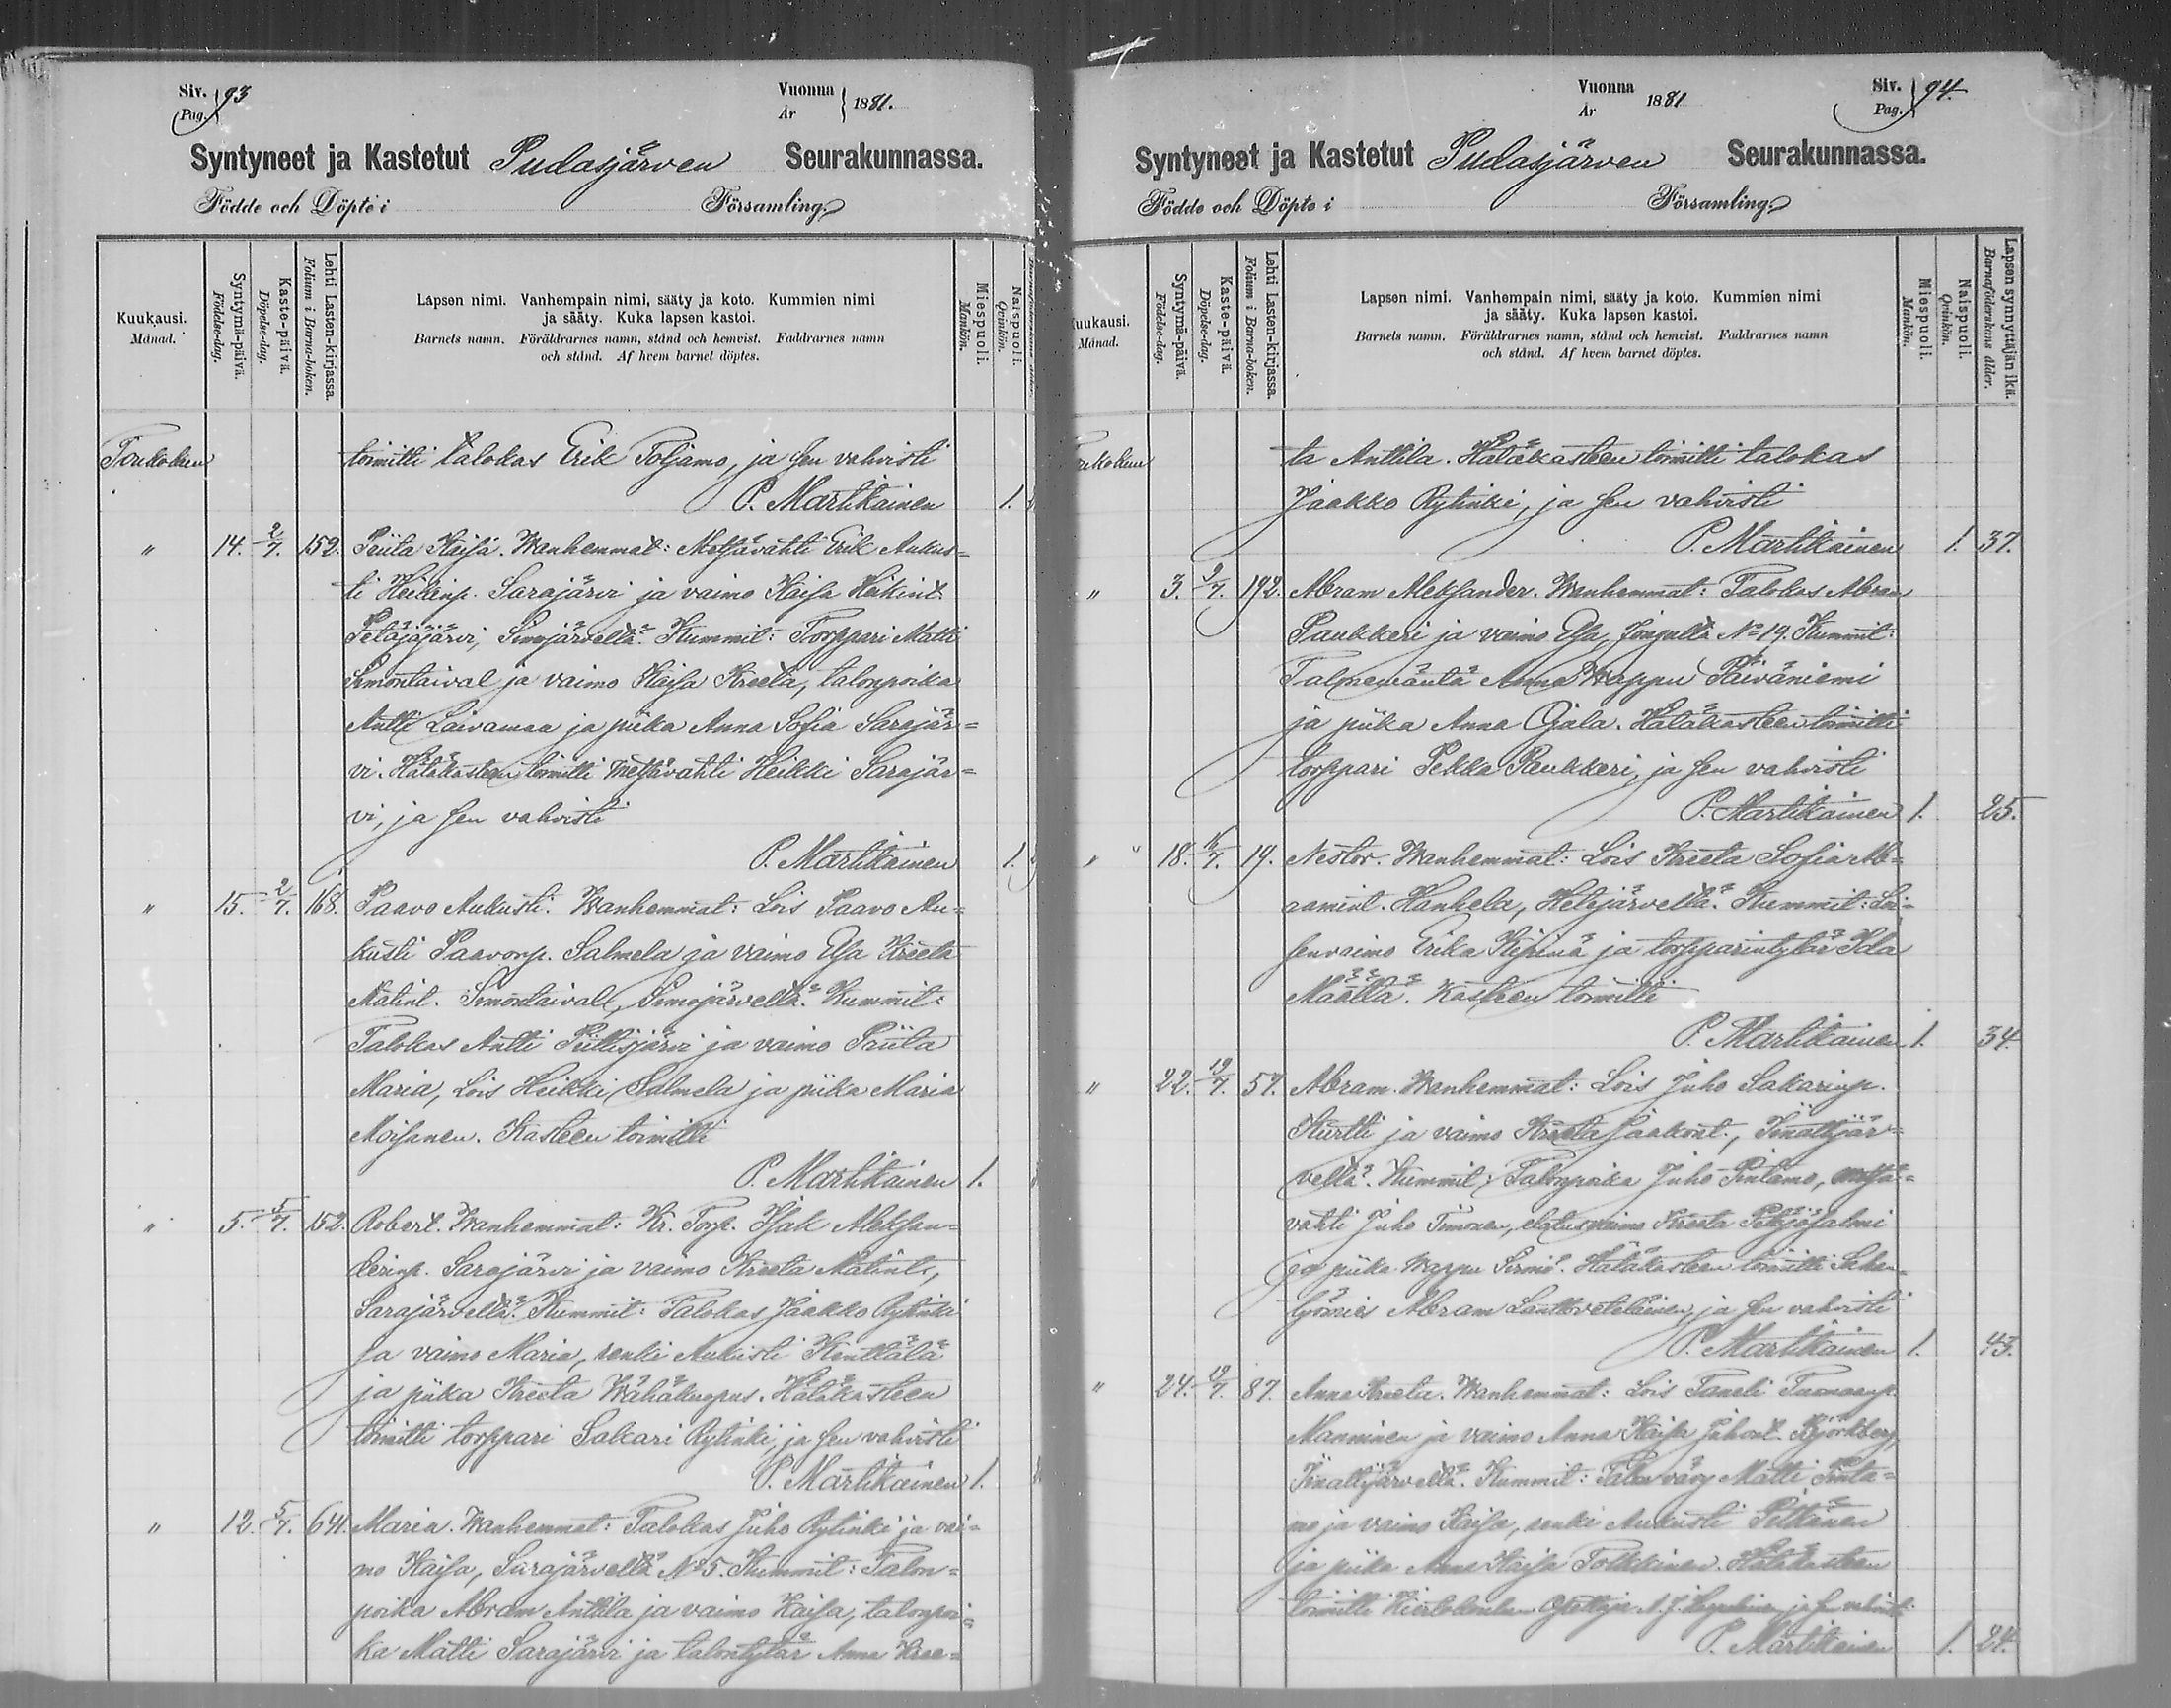 Siv. 93
Pag.
Vuonna 1881.
År
Syntyneet ja Kastetut Pudasjärven Seurakunnassa.
Födde och Döpte i Församling.
Kuukausi.
Månad.
Syntymä-päivä.
Födelse-dag.
Kaste-päivä.
Döpelse-dag.
Lehti Lasten-kirjassa.
Folium i Barna-boken.
Lapsen nimi. Vanhempain nimi, sääty ja koto. Kummien nimi
ja sääty. Kuka lapsen kastoi.
Barnets namn. Föräldrarnes namn, stånd och hemvist. Faddrarnes namn
och stånd. Af hvem barnet döptes.
Miespuoli.
Mankön.
Naispuoli.
Qvinkön.
Toukokuu toimitti talokas Erik Poljamo, ja sen vahvisti
P. Martikainen 1.
" 14. 2/7. 152. Priita Kaisa. Wanhemmat: Metsävahti Erik Aukus=
ti Heikinp. Sarajärvi ja vaimo Kaisa Heikint.
Petäjäjärvi, Simojärvellä. Kummit: Torppari Matti
Simontaival ja vaimo Kaisa Kreeta, talonpoika
Antti Laivamaa ja piika Anna Sofia Sarajär=
vi. Hätäkasteen toimitti metsävahti Heikki Sarajär=
vi, ja sen vahvisti
P. Martikainen 1.
" 15. 2/7. 168. Paavo Aukusti. Wanhemmat: Lois Paavo Au=
kusti Paavonp. Salmela ja vaimo Elsa Kreeta
Matint. Simontaival, Simojärvellä. Kummit:
Talokas Antti Piittisjärvi ja vaimo Priita
Maria, Lois Heikki Salmela ja piika Maria
Moisanen. Kasteen toimitti
P. Martikainen 1.
" 5. 5/7. 152. Robert. Wanhemmat: Kr. Torp. Isak Aleksan=
derinp. Sarajärvi ja vaimo Kreeta Matint.,
Sarajärvellä. Kummit: Talokas Jaakko Rytinki
ja vaimo Maria, renki Aukusti Kenttälä
ja piika Kreeta Wähäkuopus. Hätäkasteen
toimitti torppari Sakari Rytinki, ja sen vahvisti
P. Martikainen 1.
" 12. 5/7. 64. Maria. Wanhemmat: Talokas Juho Rytinki ja vai=
mo Kaisa, Sarajärvellä No 5. Kummit: Talon=
poika Abram Anttila ja vaimo Kaisa, talonpoi=
ka Matti Sarajärvi ja talontytär Anna Kree=
Vuonna 1881
År
Siv. 94.
Pag.
Syntyneet ja Kastetut Pudasjärven Seurakunnassa.
Födde och Döpte i Församling.
Kuukausi.
Månad.
Syntymä-päivä.
Födelse-dag.
Kaste-päivä.
Döpelse-dag.
Lehti Lasten-kirjassa.
Folium i Barna-boken.
Lapsen nimi. Vanhempain nimi, sääty ja koto. Kummien nimi
ja sääty. Kuka lapsen kastoi.
Barnets namn. Föräldrarnes namn, stånd och hemvist. Faddrarnes namn
och stånd. Af hvem barnet döptes.
Miespuoli.
Mankön.
Naispuoli.
Qvinkön.
Lapsen synnyttäjän ikä.
Barnaföderskans ålder.
Toukokuu ta Anttila. Hätäkasteen toimitti talokas
Jaakko Rytinki, ja sen vahvisti
P. Martikainen 1. 37.
" 3. 9/7. 192. Abram Aleksander. Wanhemmat: Talokas Abram
Paukkeri ja vaimo Elsa, Jongulla No 19. Kummit:
Talonemäntä Anna Wappu Päiväniemi
ja piika Anna Ojala. Hätäkasteen toimitti
torppari Pekka Paukkeri, ja sen vahvisti
P. Martikainen 1. 25.
" 18. 7. 19. Nestor. Wanhemmat: Lois Kreeta Sofia Ab=
ramint. Hankela, Hetejärvellä. Kummit: Loi=
senvaimo Erika Kipinä ja torpparintytär Ida
Määttä. Kasteen toimitti
P. Martikainen 1. 34.
" 22. 19/7. 57. Abram. Wanhemmat: Lois Juho Sakarinp.
Kurtti ja vaimo Kreeta Jaakont., Iinattijär=
vellä. Kummit: Talonpoika Juho Pintamo, metsä=
vahti Juho Timonen, vaimo Kreeta Petäjäsalmi
ja piika Wappu Sirniö. Hätäkasteen toimitti Sahan=
työmies Abram Lantto, ja sen vahvisti
P. Martikainen 1. 43.
" 24. 19/7. 87. Anna Kreeta. Wanhemmat: Lois Taneli Tuomaanp.
Manninen ja vaimo Anna Kaisa Juhont. Björkberg,
Iinattijärvellä. Kummit: Talon vävy Matti Pinta=
mo ja vaimo Kaisa, renki Aukusti Pitkänen
ja piika Anna Kaisa Tolkkinen. Hätäkasteen
toimitti Kiertokoulun Opettaja A. J. ja sen vahvisti
P. Martikainen 1. 24.